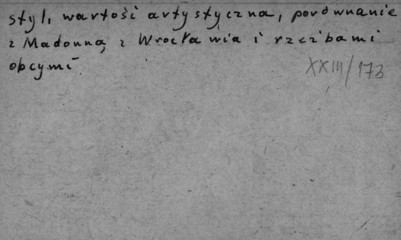 styl, wartość artystyczna, porównanie
z Madonną z Wrocławia i rzeźbami
obcymi.
XXIII/173